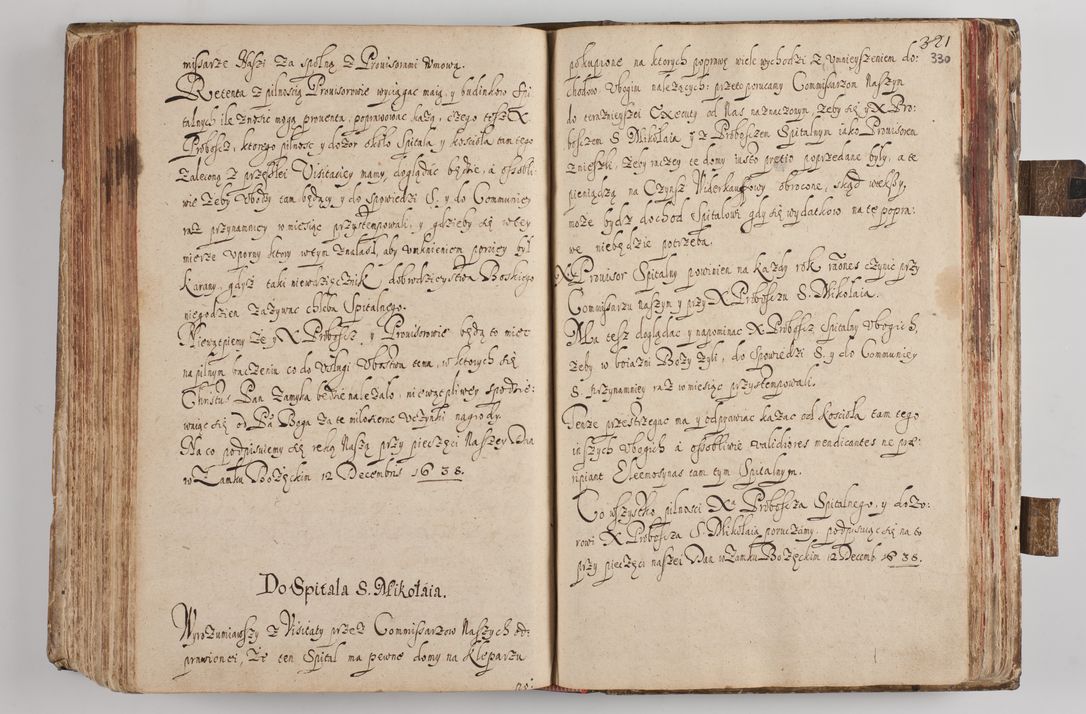 missarze Naszi za spolną z Prouisorami vmową.
Retenta z pilnoscią Prouisorowie wyciągac maią, y budinkow Spi
talnych ile znosic mogą prouenta, poprawowac każą, czego tesz X
Proboscz, ktorego pilnosc y dozor około Spitala y kosciola tamtego
zaleconą z przeszłei Visitaciey mamy, doglądac będzie, a osobli:
wie żeby vbodzy tam będący y do spowiedzi S. y do Communiey
raz przynamniey w miesiąc przystempowali, y gdzieby się w tey
mierze vporny ktory w tym znalasł, aby vmknieniem porciey był
karany, gdysz taki niewdzięcznik dobrodzieystwa Boskiego
niegodzien zazywac chleba Spitalnego.
Niewątpiemy ze y X Proboscz, y Prouisorowie będą to miec
na pilnym baczeniu co do vsługi vbostwa temu, w ktorych się
Christus Pan zamyka będzie należało, niewątpliwey spodzie:
waiąc się od Pa Boga za te miłosierne vczynki nagrody.
Na co podpisuiemy się ręką Naszą przy pieczęci Naszey Dan
w Zamku Bodzęckim 12 Decembris 1638.
Do Spitala S. Mikołaia.
Wyrozumiawszy z Visitaty przez Commissarzow Naszych od:
prawionei, że ten Spital ma pewne domy na Kleparzu
321
330
pokupione na ktorych poprawę wiele wychodzi, z vmnieyszeniem do:
chodow vbogim należących: przeto porucamy Commissarzom Naszym
do teraznieyszei Execucy od Nas naznaczonym, żeby się z X Pro:
bosczem S. Mikołaia y z Probosczem Spitalnym iako Prouisorem
znieszli, żeby raczey te domy iusto precio poprzedane były, a te
pieniądze na Czynsz Widerkauffowy obrocone, skąd większy,
może bydz dochod Spitalowi gdy się wydatkow na te popra:
wę niebędzie potrzeba.
X Prouisor Spitalny powinien na każdy rok raōnes czynic przy
Commissarzu naszym y przy X Proboszczu S. Mikołaia.
Ma tesz doglądac y napominac X Proboscz Spitalny vbogich,
żeby w boiazni Bozy żyli, do Spowiedzi S. y do Communiey
S. przynamniey raz w miesiąc przystempowali.
Tenże przestrzegac ma y odprawiac kazac od kosciola tamtego
inszych vbogich a osobliwie validiores mendicantes ne præ:
ripiant Eleemosynas tamtym Spitalnym.
Co wszystko pilnosci Xa Probosczа Spitalnego, y dozo:
rowi X Proboscza S. Mikołaia poruczamy, podpisuiąc się na to
przy pieczęci naszei Dan w Zamku Bodzęckim 12 Decemb. 1638.